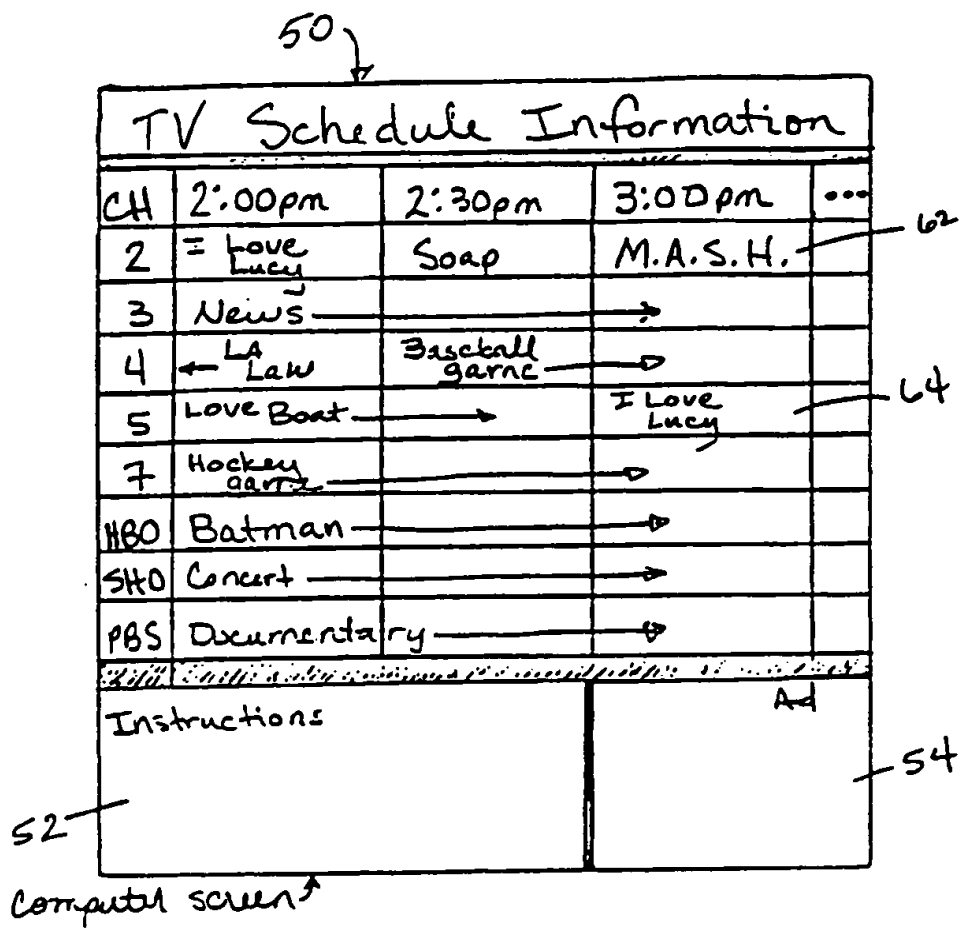 50
TV Schedule Information
CH 2:00pm 2:30pm 3:00pm •••
62
2 I Love Lucy Soap M.A.S.H.
3 News
4 LA Law Baseball game
64
5 Love Boat I Love Lucy
7 Hockey game
HBO Batman
SHO Concert
PBS Documentary
Instructions
Ad
54
52
Computer screen